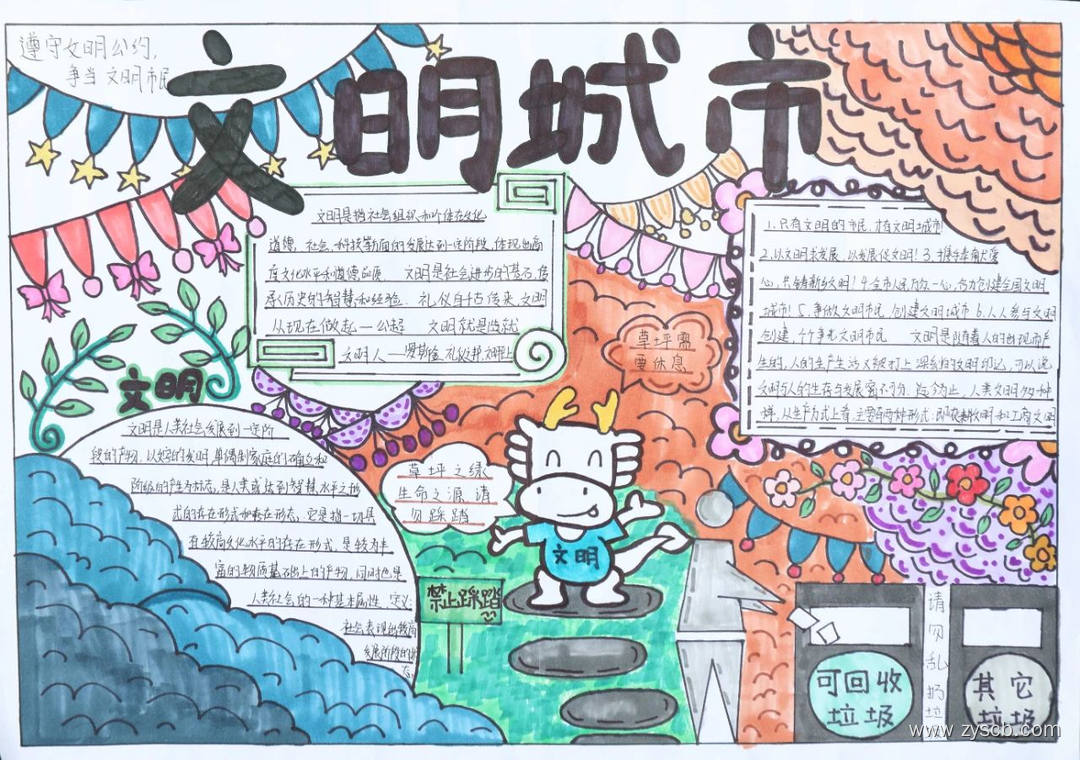 遵守文明公约，
争当文明市民
文明城市
文明是指社会组织和价值在文化
道德、社会、科技等方面的发展达到一定阶段,体现出高
度文化水平和道德品质 文明是社会进步的基石,传
承历史的智慧和经验 礼仪自古传来,文明
从现在做起——公超 文明就是造就
文明人——罗斯金 礼仪之邦,文明
1.只有文明的市民,才有文明城市!
2.以文明求发展,以发展促文明! 3.
城市! 5.争做文明市民 创建文明城市 6.人人参与文明
创建,个个争光文明市民 文明是随着人的出现而产
生的,人的生产生活 打上 深刻的文明印记,可以说
文明与人的生存与发展密不可分 迄今为止,人类文明多种多
样,从生产方式上看,主要有两种形式:即农耕文明和工商文明
草坪需
要休息
文明
文明是人类社会发展到一定阶
段的产物,以文字的发明,单偶制家庭的确立和
阶级的产生为标志,是人类或达到智慧水平之物
式的存在形式和表在形态,它是指一切具
有较高文化水平的存在形式,是较为丰
富的物质基础上的产物,同时也是
人类社会的一种基本属性
社会表现出较高
发展阶段的状
态
草坪之绿
生命之源,请
勿踩踏
文明
禁止踩踏
请勿乱扔垃
可回收
垃圾
其它
垃圾
www.zyscb.com